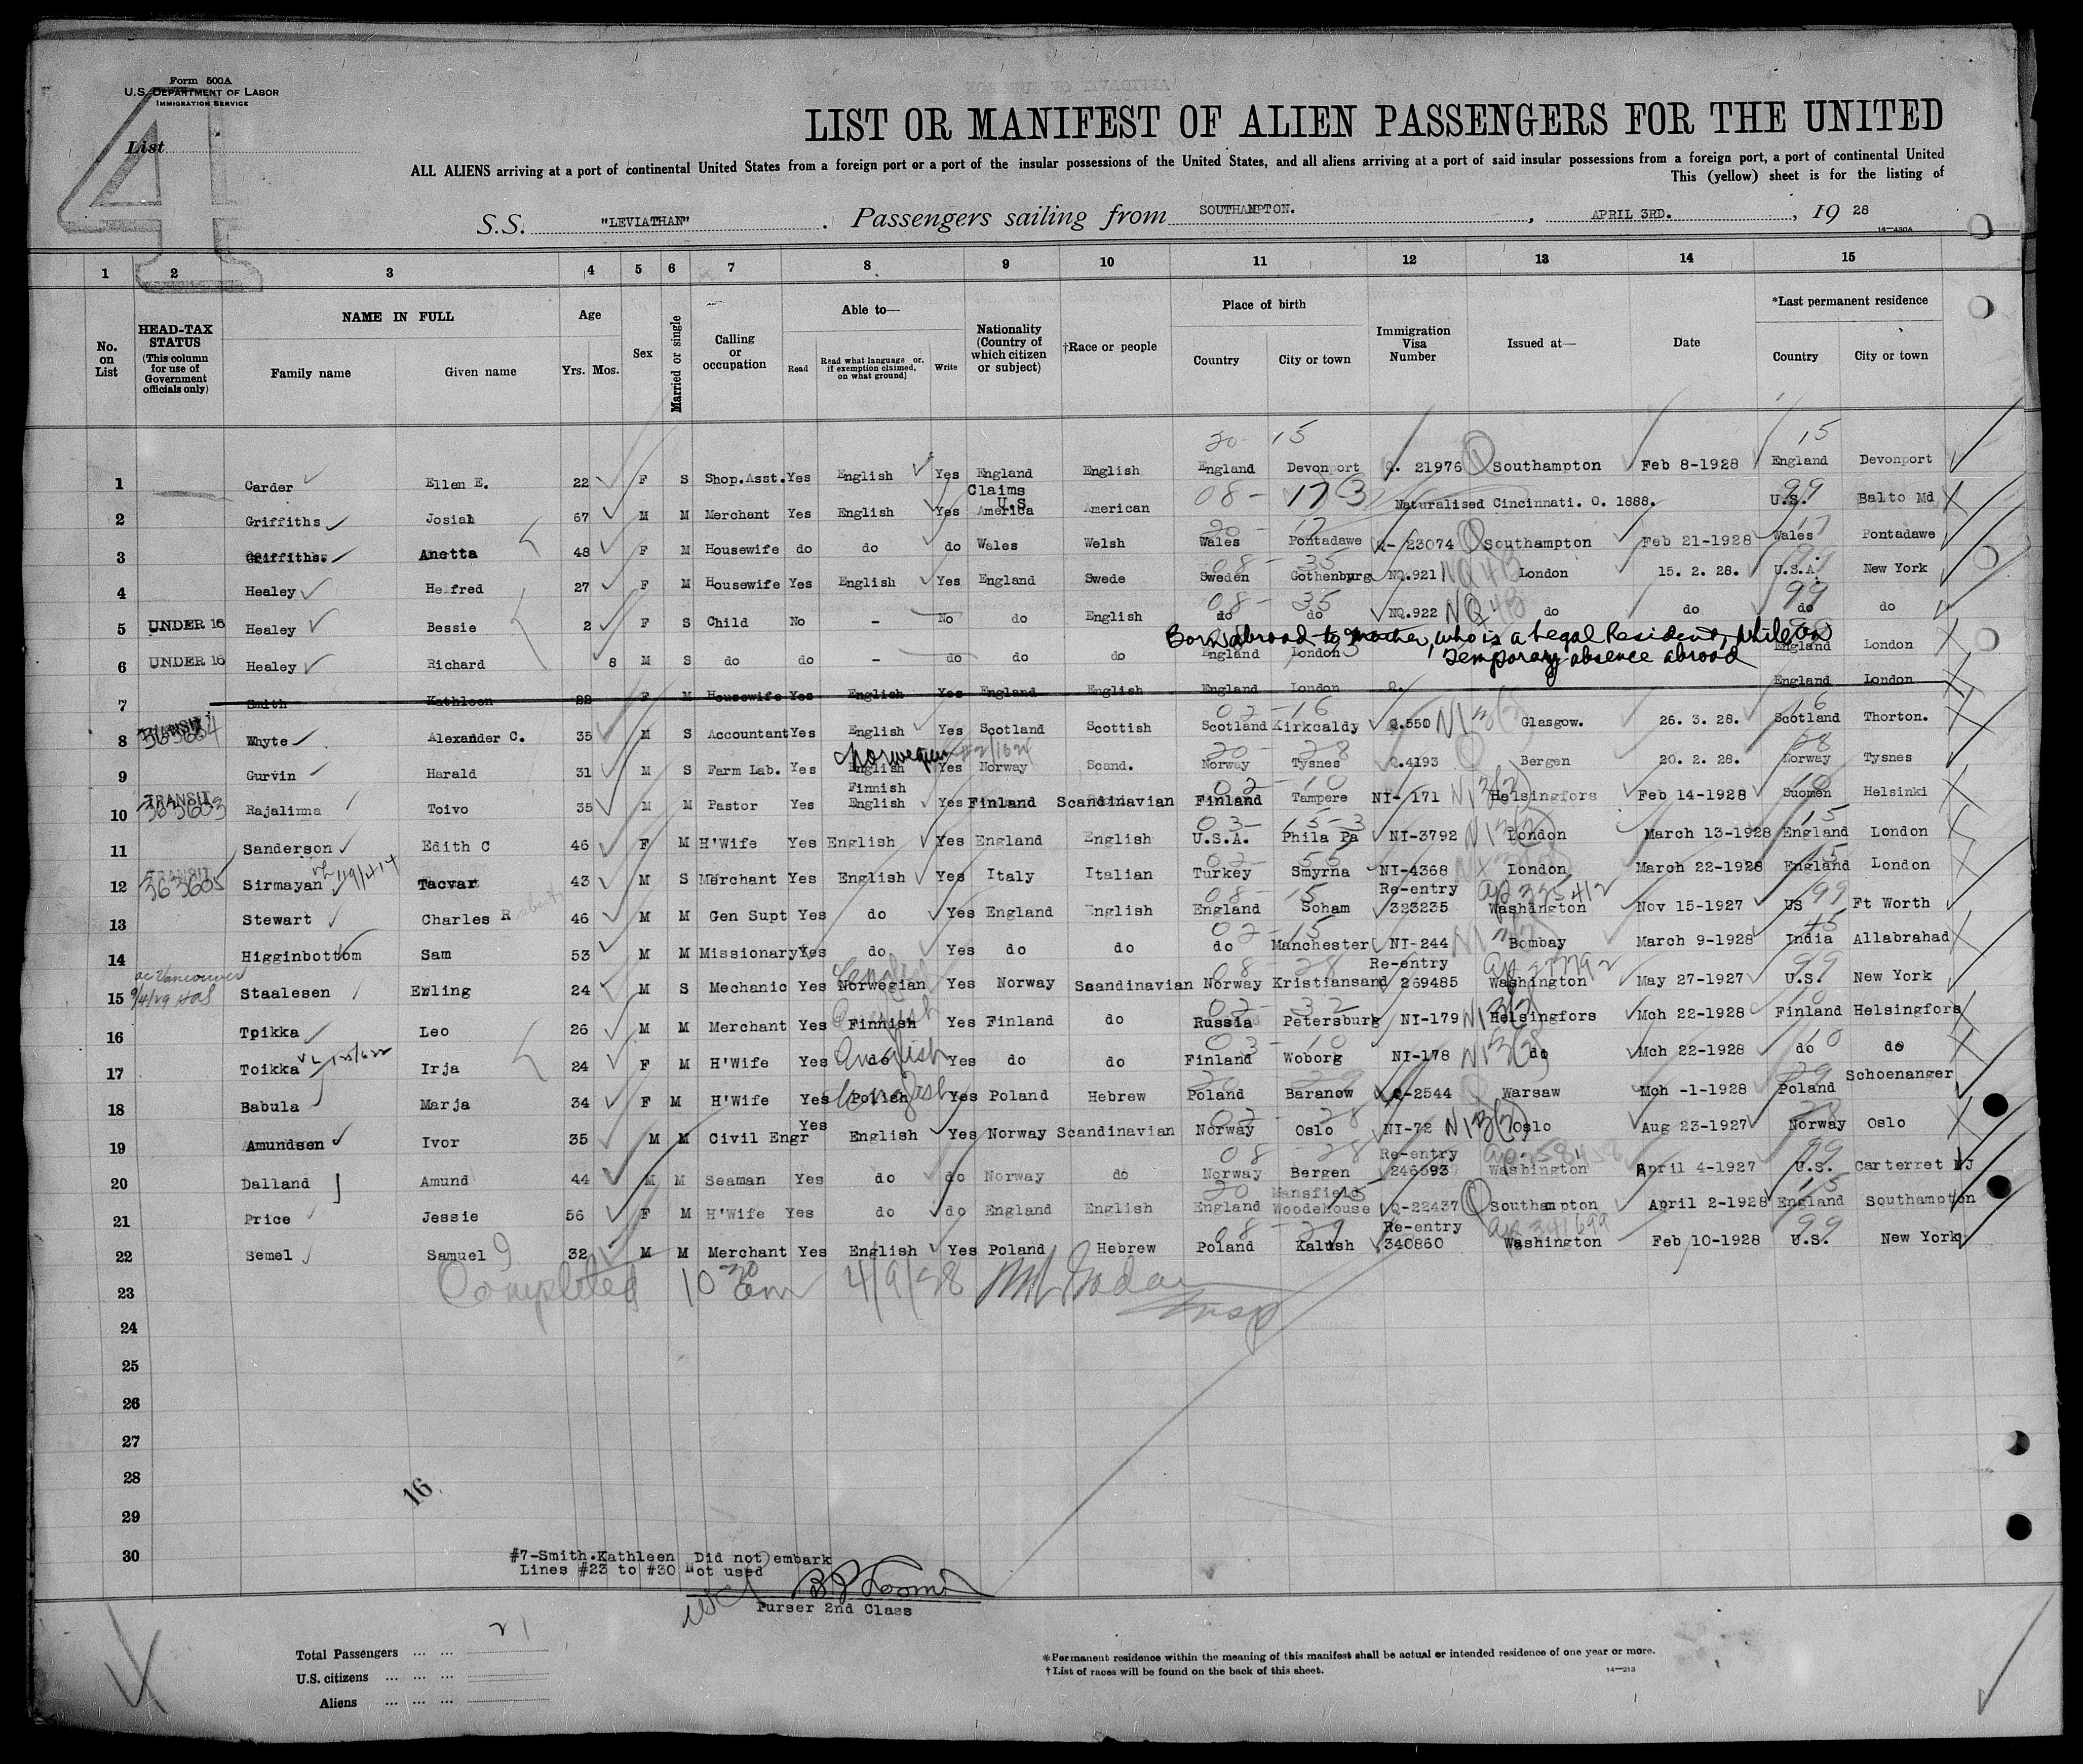 Form 500A
U.S. DEPARTMENT OF LABOR
IMMIGRATION SERVICE
List
41
LIST OR MANIFEST OF ALIEN PASSENGERS FOR THE UNITED
ALL ALIENS arriving at a port of continental United States from a foreign port or a port of the insular possessions of the United States, and all aliens arriving at a port of said insular possessions from a foreign port, a port of continental United
This (yellow) sheet is for the listing of
S.S. "LEVIATHAN" . Passengers sailing from SOUTHAMPTON. , APRIL 3RD. , 19 28
14—430A
1 2 3 4 5 6 7 8 9 10 11 12 13 14 15
No. on List
HEAD-TAX STATUS (This column for use of Government officials only)
NAME IN FULL
Family name Given name
Age
Yrs. Mos.
Sex
Married or single
Calling or occupation
Able to—
Read Read what language or, if exemption claimed, on what ground Write
Nationality (Country of which citizen or subject)
†Race or people
Place of birth
Country City or town
Immigration Visa Number
Issued at—
Date
*Last permanent residence
Country City or town
20- 15 15
1 Carder Ellen E. 22 F S Shop.Asst. Yes English Yes England English England Devonport Q. 21976 Southampton Feb 8-1928 England Devonport
Claims U.S. 08- 17 3 99
2 Griffiths Josiah 67 M M Merchant Yes English Yes America American Naturalised Cincinnati. O. 1888. U.S. Balto Md
20- 17 17
3 Griffiths. Anetta 48 F M Housewife do do do Wales Welsh Wales Pontadawe Q- 23074 Southampton Feb 21-1928 Wales Pontadawe
08- 35 99
4 Healey Helfred 27 F M Housewife Yes English Yes England Swede Sweden Gothenburg NQ.921 NQ4B London 15. 2. 28. U.S.A. New York
08- 35 99
5 UNDER 16 Healey Bessie 2 F S Child No - No do English do do NQ.922 NQ4B do do do do
Born abroad to mother, who is a Legal Resident, while on
Temporary absence abroad
6 UNDER 16 Healey Richard 8 M S do do - do do do England London England London
7 Smith Kathleen 22 F M Housewife Yes English Yes England English England London Q. England London
02- 16 16
8 TRANSIT 363604 Whyte Alexander C. 35 M S Accountant Yes English Yes Scotland Scottish Scotland Kirkcaldy Q.550 NI3(2) Glasgow. 26. 3. 28. Scotland Thorton.
Norwegian 20- 28 28
9 Gurvin Harald 31 M S Farm Lab. Yes English Yes Norway Scand. Norway Tysnes Q.4193 Bergen 20. 2. 28. Norway Tysnes
Finnish 02- 10 10
10 TRANSIT 363603 Rajalinna Toivo 35 M M Pastor Yes English Yes Finland Scandinavian Finland Tampere NI- 171 NI3(2) Helsingfors Feb 14-1928 Suomen Helsinki
03- 15-3 15
11 Sanderson Edith C 46 F M H'Wife Yes English Yes England English U.S.A. Phila Pa NI-3792 NI3(2) London March 13-1928 England London
02- 55 15
12 TRANSIT 363605 Sirmayan Tacvar 43 M S Merchant Yes English Yes Italy Italian Turkey Smyrna NI-4368 London March 22-1928 England London
08- 15 Re-entry 99
13 Stewart Charles R 46 M M Gen Supt Yes do Yes England English England Soham 323235 Washington Nov 15-1927 US Ft Worth
02- 15 45
14 Higginbottom Sam 53 M M Missionary Yes do Yes do do do Manchester NI-244 Bombay March 9-1928 India Allabrahad
ac Vancouver English 08- 28 Re-entry 99
15 Staalesen Erling 24 M S Mechanic Yes Norwegian Yes Norway Scandinavian Norway Kristiansand 269485 Washington May 27-1927 U.S. New York
English 02- 32 10
16 Tpikka Leo 26 M M Merchant Yes Finnish Yes Finland do Russia Petersburg NI-179 NI3(2) Helsingfors Mch 22-1928 Finland Helsingfors
English 03- 10 10
17 Toikka Irja 24 F M H'Wife Yes do Yes do do Finland Woborg NI-178 NI3(2) do Mch 22-1928 do do
English 29 29
18 Babula Marja 34 F M H'Wife Yes Polish Yes Poland Hebrew Poland Baranow Q-2544 Warsaw Mch -1-1928 Poland Schoenanger
02- 28 28
19 Amundsen Ivor 35 M M Civil Engr Yes English Yes Norway Scandinavian Norway Oslo NI-72 NI3(2) Oslo Aug 23-1927 Norway Oslo
08- 28 Re-entry 99
20 Dalland Amund 44 M M Seaman Yes do do Norway do Norway Bergen 246593 Washington April 4-1927 U.S. Carterret NJ
20 Mansfield 15 15
21 Price Jessie 56 F M H'Wife Yes do do England English England Woodehouse Q-22437 Southampton April 2-1928 England Southampton
08- 29 Re-entry 99
22 Semel Samuel 32 M M Merchant Yes English Yes Poland Hebrew Poland Kalush 340860 Washington Feb 10-1928 U.S. New York
Completed 10 30 am 4/9/28
Insp
23
24
25
26
27
28
16
29
30
#7-Smith.Kathleen Did not embark
Lines #23 to #30 Not used
Purser 2nd Class
21
Total Passengers
U.S. citizens
Aliens
*Permanent residence within the meaning of this manifest shall be actual or intended residence of one year or more.
†List of races will be found on the back of this sheet. 14—213